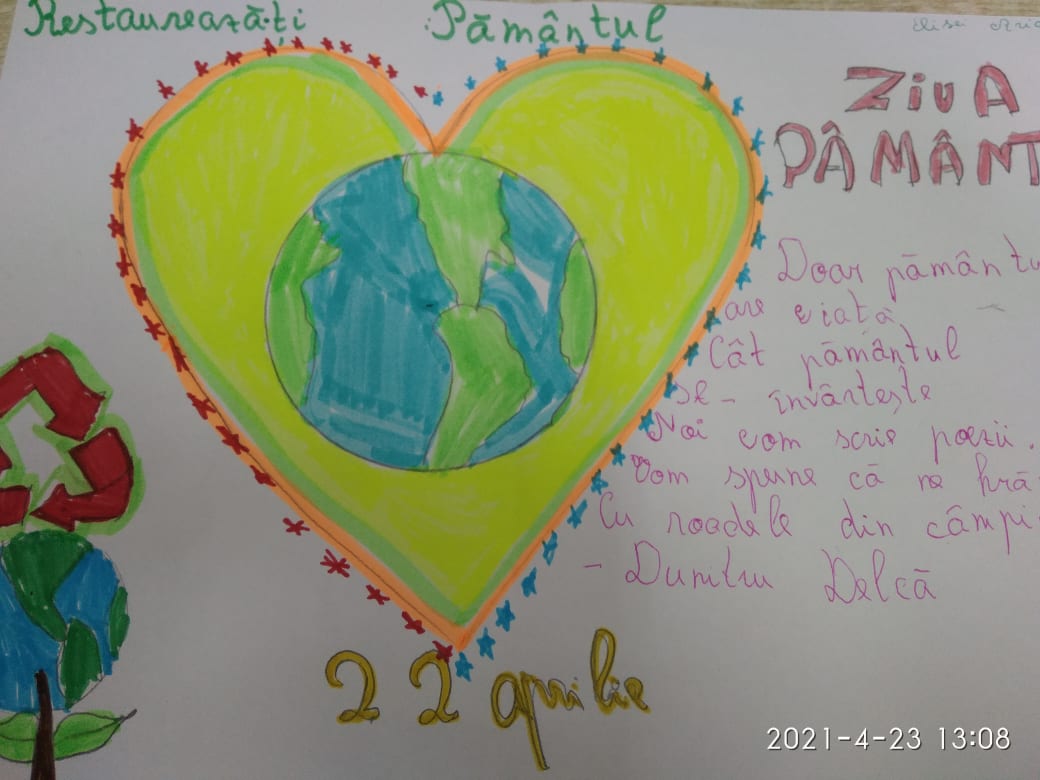 Restaurează-ți Pământul
Elisei
ZiUA
PÂMÂNT
Doar pământu
are viață
Cât pământul
se - învârtește
Noi vom scrie poezii.
Vom spune că ne hră
Cu roadele din câmpi
- Dumitru Delcă
22 aprilie
2021-4-23 13:08